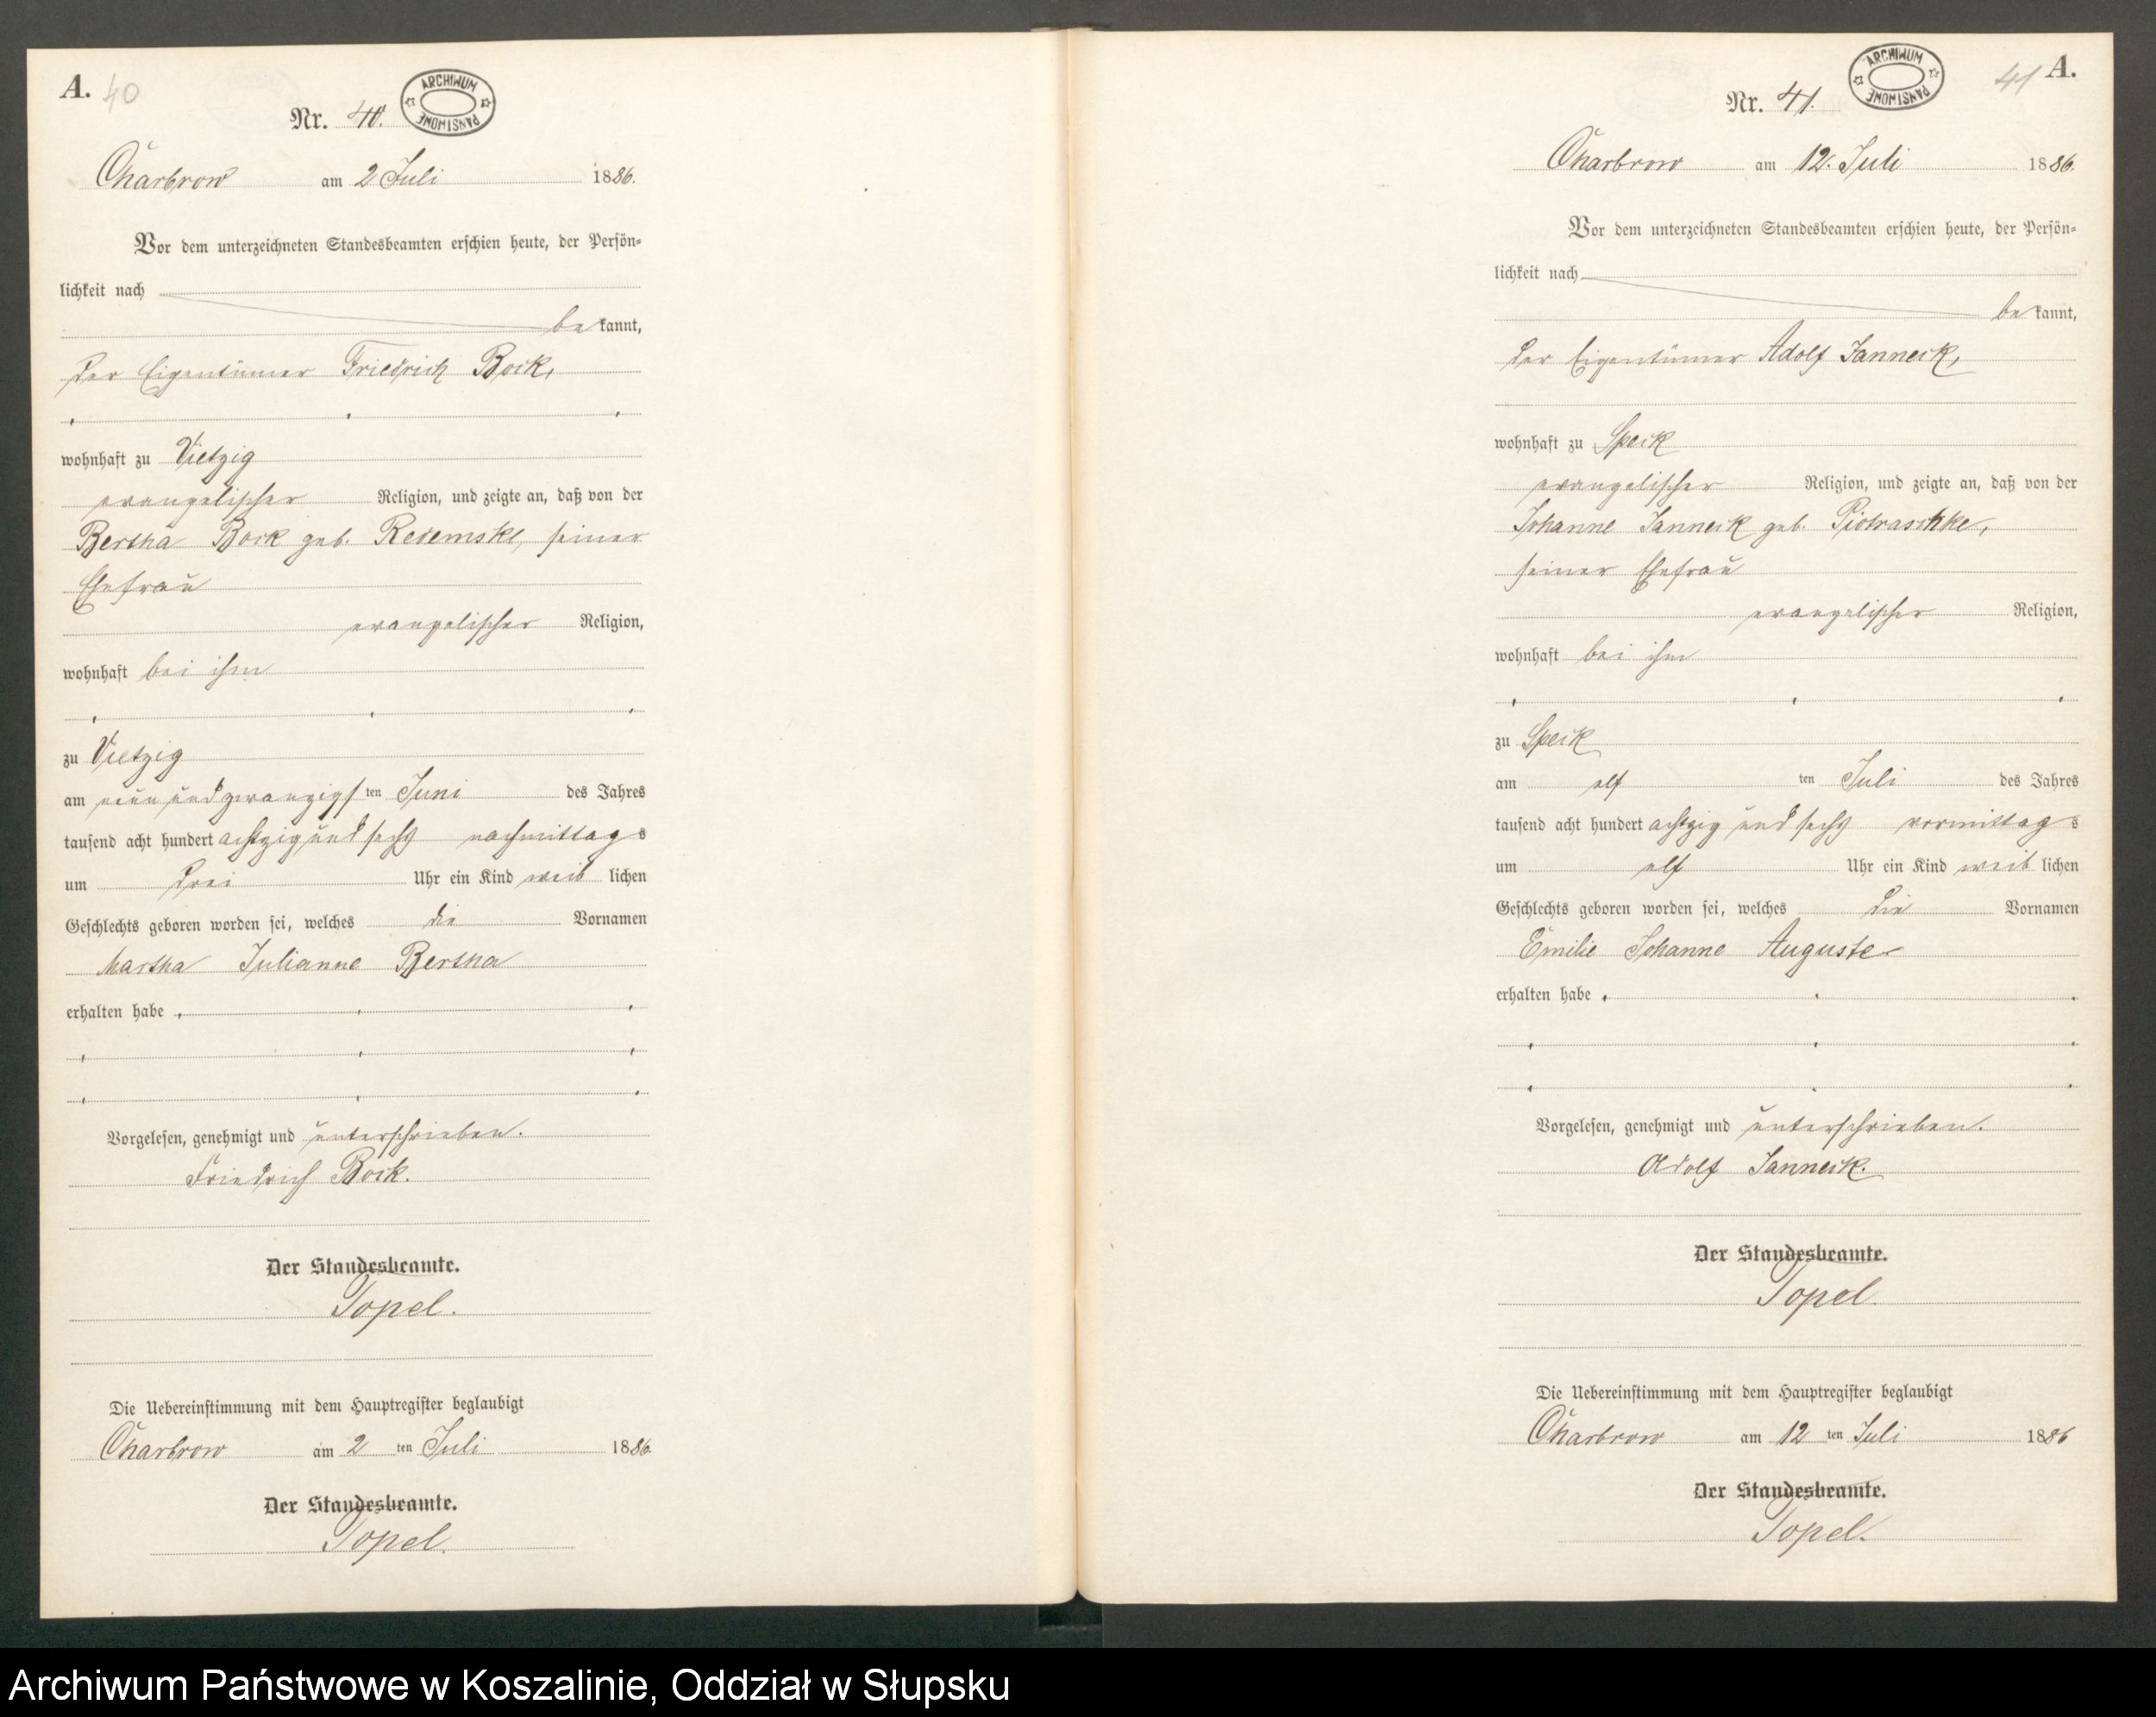 A. 40
Nr. 40.
ARCHIWUM PAŃSTWOWE
Charbrow am 2 Juli 1886.
Vor dem unterzeichneten Standesbeamten erschien heute, der Persön-
lichkeit nach
bekannt,
der Eigentümer Friedrich Bock,
wohnhaft zu Vietzig
evangelischer Religion, und zeigte an, daß von der
Bertha Bock geb. seiner
Ehefrau
evangelischer Religion,
wohnhaft bei ihm
zu Vietzig
am neun und zwanzigsten Juni des Jahres
tausend acht hundert achtzig und sechs nachmittags
um drei Uhr ein Kind weiblichen
Geschlechts geboren worden sei, welches die Vornamen
Martha Julianne Bertha
erhalten habe
Vorgelesen, genehmigt und unterschrieben.
Friedrich Bock.
Der Standesbeamte.
Topel.
Die Uebereinstimmung mit dem Hauptregister beglaubigt
Charbrow am 2 ten Juli 1886.
Der Standesbeamte.
Topel.
41 A.
Nr. 41.
ARCHIWUM PAŃSTWOWE
Charbrow am 12. Juli 1886.
Vor dem unterzeichneten Standesbeamten erschien heute, der Persön-
lichkeit nach
bekannt,
der Eigentümer Adolf Janneck,
wohnhaft zu Speck
evangelischer Religion, und zeigte an, daß von der
Johanne Janneck geb. Piotraschke,
seiner Ehefrau
evangelischer Religion,
wohnhaft bei ihm
zu Speck
am elf ten Juli des Jahres
tausend acht hundert achtzig und sechs vormittags
um elf Uhr ein Kind weiblichen
Geschlechts geboren worden sei, welches die Vornamen
Emilie Johanne Auguste
erhalten habe
Vorgelesen, genehmigt und unterschrieben.
Adolf Janneck.
Der Standesbeamte.
Topel.
Die Uebereinstimmung mit dem Hauptregister beglaubigt
Charbrow am 12 ten Juli 1886
Der Standesbeamte.
Topel.
Archiwum Państwowe w Koszalinie, Oddział w Słupsku